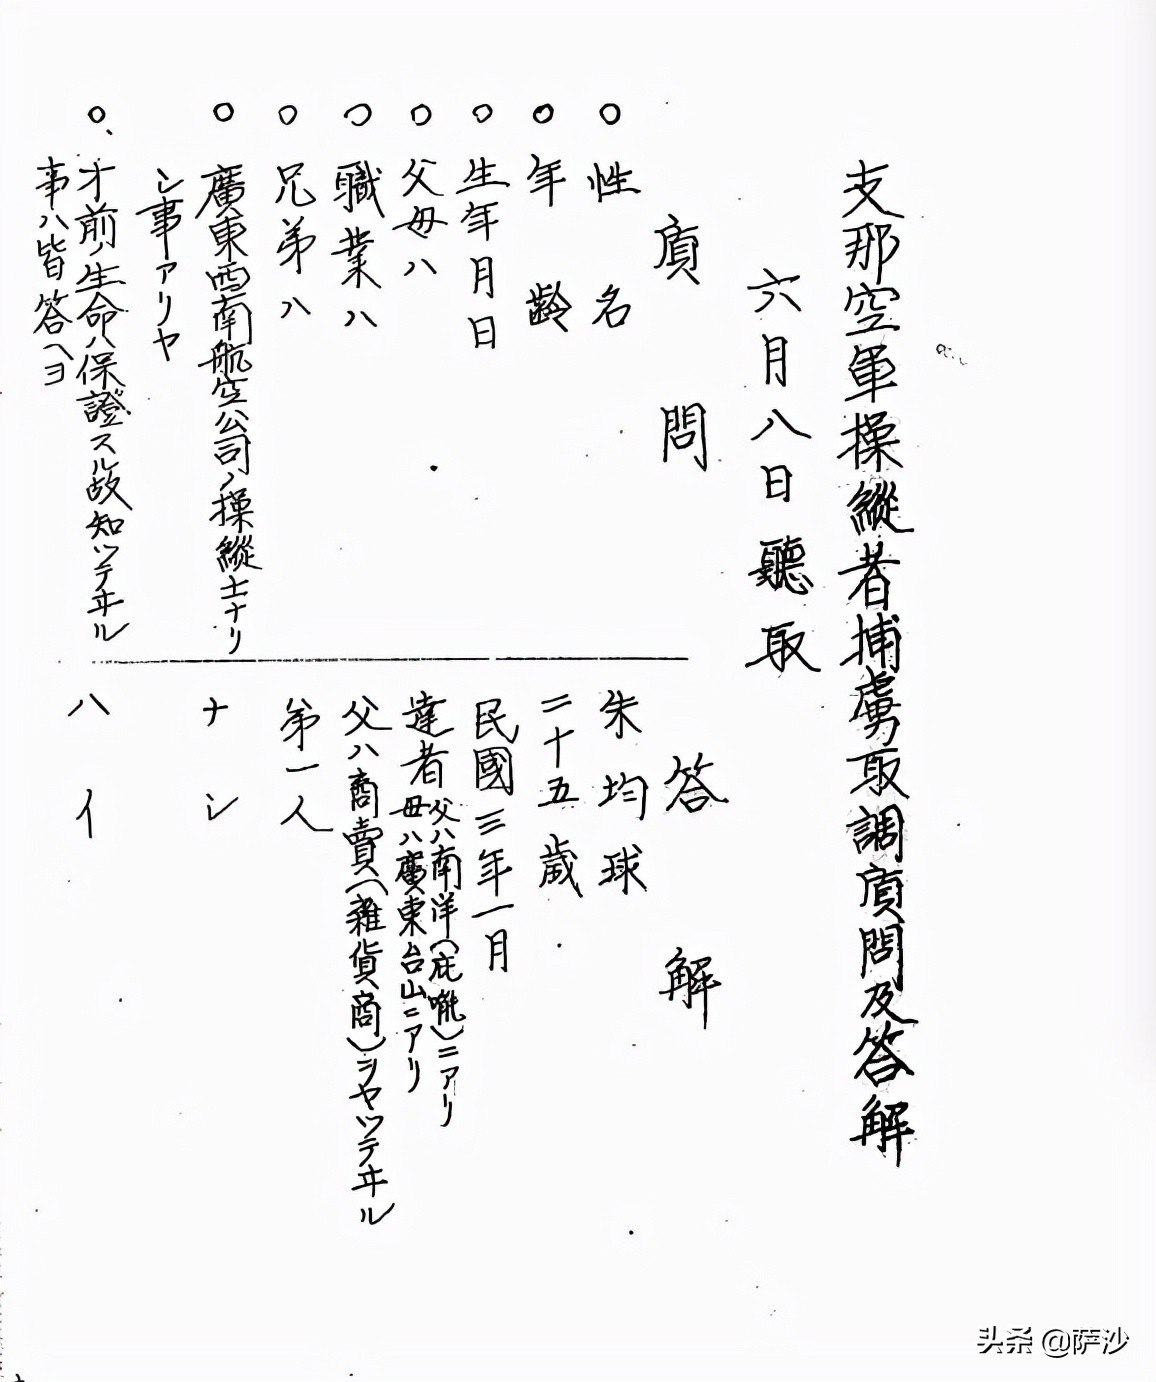 支那空軍操縱者捕虜取調質問及答解
六月八日聽取
質問
答解
○性名
朱均球
○年齢
二十五歲
○生年月日
民國三年一月
○父母ハ
達者 父ハ南洋(庇㖿)ニアリ
母ハ廣東台山ニアリ
○職業ハ
父ハ商賣(雜貨商)ヲヤツテヰル
○兄弟ハ
弟一人
○廣東西南航空公司ノ操縱士ナリ
シ事アリヤ
ナシ
○オ前ノ生命ハ保證スル故知ツテヰル
事ハ皆答ヘヨ
ハイ
头条 @萨沙